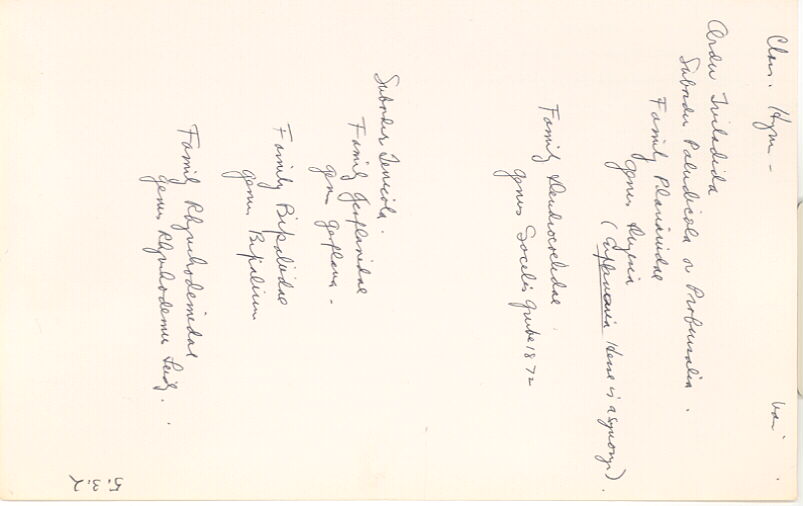 Class. Hym -
Order Tricladida
Suborder Paludicola or Probursalia.
Family Planariidae
genus
( Hesse is a synonym).
Family Dendrocoelidae
genus Socelis Grube 1872
Suborder Terricola.
Family Geoplanidae
gen Geoplana -
Family Bipaliidae
genus Bipalium
Family Rhynchodemidae
genus Rhynchodemus Leidy.
5.3.2